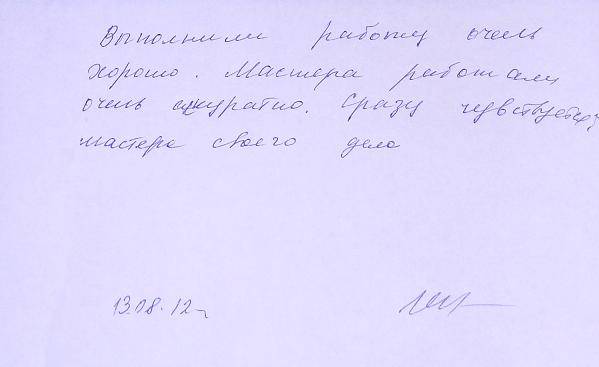 Выполнили работу очень
хорошо. Мастера работали
очень аккуратно. Сразу чувствуется,
мастера своего дела
13.08.12г